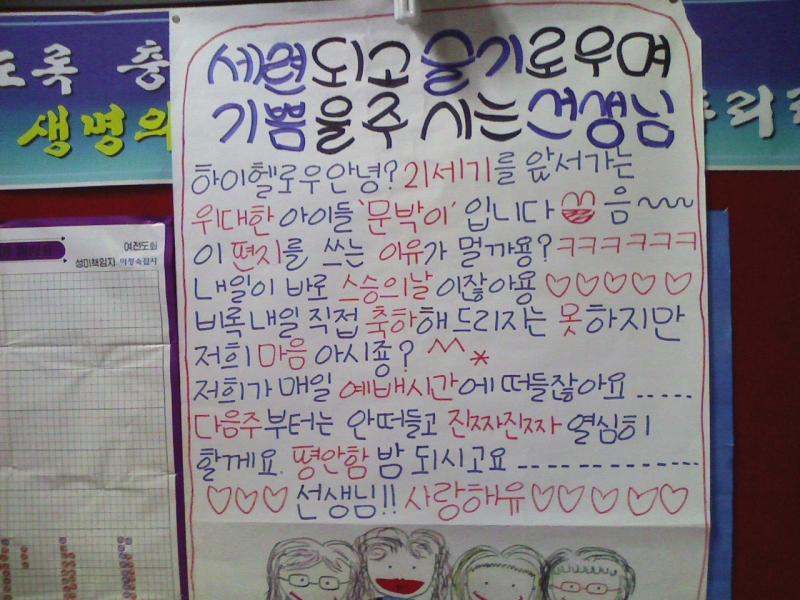 세련되고 슬기로우며
기쁨을 주시는 선생님
하이헬로우안녕? 21세기를 앞서가는
위대한 아이들 '문박이' 입니다 음~~
이 편지를 쓰는 이유가 멀까용? ㅋㅋㅋㅋㅋㅋ
내일이 바로 스승의날 이잖아용 ♡♡♡♡♡
비록 내일 직접 축하해드리지는 못하지만
저희 마음 아시죵? ^^*
저희가 매일 예배시간에 떠들잖아요 .....
다음주부터는 안떠들고 진짜진짜 열심히
할께요. 평안함 밤 되시고요 ----------
♡♡♡ 선생님!! 사랑해유 ♡♡♡♡♡
도록 충
생명의
우리
여전도회
성미책임자